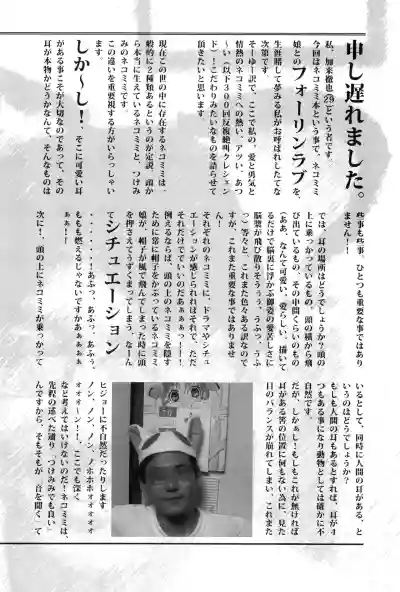 申し遅れました。
私、加来徹也(29)という者です。
今回はネコミミ本という事で、ネコミミ
娘とのフォーリンラブを、
生涯賭して夢みる私がお呼ばれしたてな
次第です。
そーゆー訳で、ここで私の、愛と勇気と
情熱のネコミミへの熱い、アツい、あつ
〜い(以下300回反複絶叫クレッシェン
ド)!こだわりみたいなものを語らせて
頂きたいと思います
現在この世の中に存在するネコミミは、
般的に2種類あるというのが定説。頭か
ら本当に生えているネコミミと、つけみ
みのネコミミです。
この違いを重要視する方がいらっしゃい
ます。
しか〜し! そこに可愛い耳
がある事こそが大切なのであって、その
耳が本物かどうかなんて、そんなものは
些事も些事、ひとつも重要な事ではあり
ません!!
では、耳の場所はどうでしょうか?頭の
上に乗っかっているもの。頭の横から飛
び出ているもの、その中間くらいのもの
(ああ、なんて可愛い、愛らしい、描いて
るだけで脳裏に浮かぶ御姿の愛苦しさに
脳漿が飛び散りそうぅぅ、うふっ、うふ
っ)等々と、これまた色々ある訳なので
すが、これまた重要な事ではありませ
ん。
それぞれのネコミミに、ドラマやシチュ
エーションが感じられればそれで、ただ
それだけでいいのだあぁぁっ!!!
例えるならば、頭の上のネコミミを隠す
ために常に帽子をかぶっているネコミミ
娘が、帽子が風で飛んでしまった時に頭
を押さえてうずくまってしまう、なーん
てシチュエーション
・・・・・・!あふっ、あふっ、あふぅ、
もも燃えるじゃないですかあぁぁぁぁ
ぁぁ!!
次に!頭の上にネコミミが乗っかって
いるとして、同時に人間の耳がある、と
いうのはどうでしょうか?
もしも人間の耳もあるとすれば、耳が4
つもある事になり動物としては確かに不
自然です。
だが、しかぁし!もしもこれが無ければ
耳がある筈の位置に何もない為に、見た
目のバランスが崩れてしまい、これまた
ヒジョーに不自然だったりします
ノン、ノン、ノン、ノホホォォォォォ
オォォ〜ン!!、ここでも深く
など考えてはいけないのだ!ネコミミは、
先程の述べた通り、つけみみでも良い
んですから、そもそもが、音を聞くて